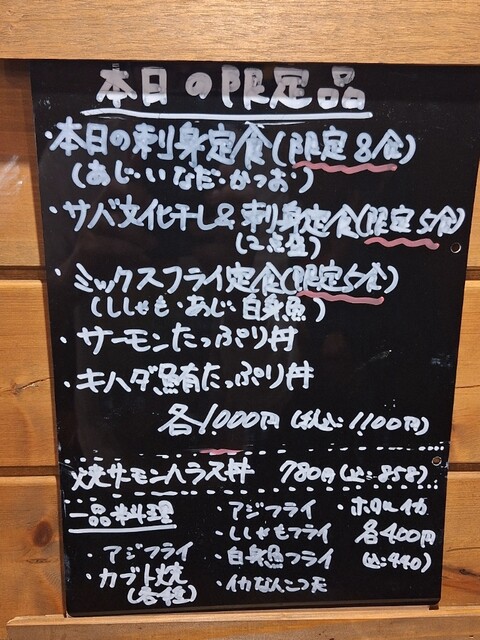 本日の限定品
・本日の刺身定食(限定8食)
(あじ・いなだ・かつお)
・サバ文化干し&刺身定食(限定5食)
(二点盛)
・ミックスフライ定食(限定5食)
(ししゃも・あじ・白身魚)
・サーモンたっぷり丼
・キハダ鮪たっぷり丼
各1,000円(税込:1,100円)
焼サーモンハラス丼 780円(込:858)
一品料理
・アジフライ
・カブト焼
(各種)
・アジフライ
・ししゃもフライ
・白身魚フライ
・イカなんこつ天
・ホタルイカ
各400円
(込:440)